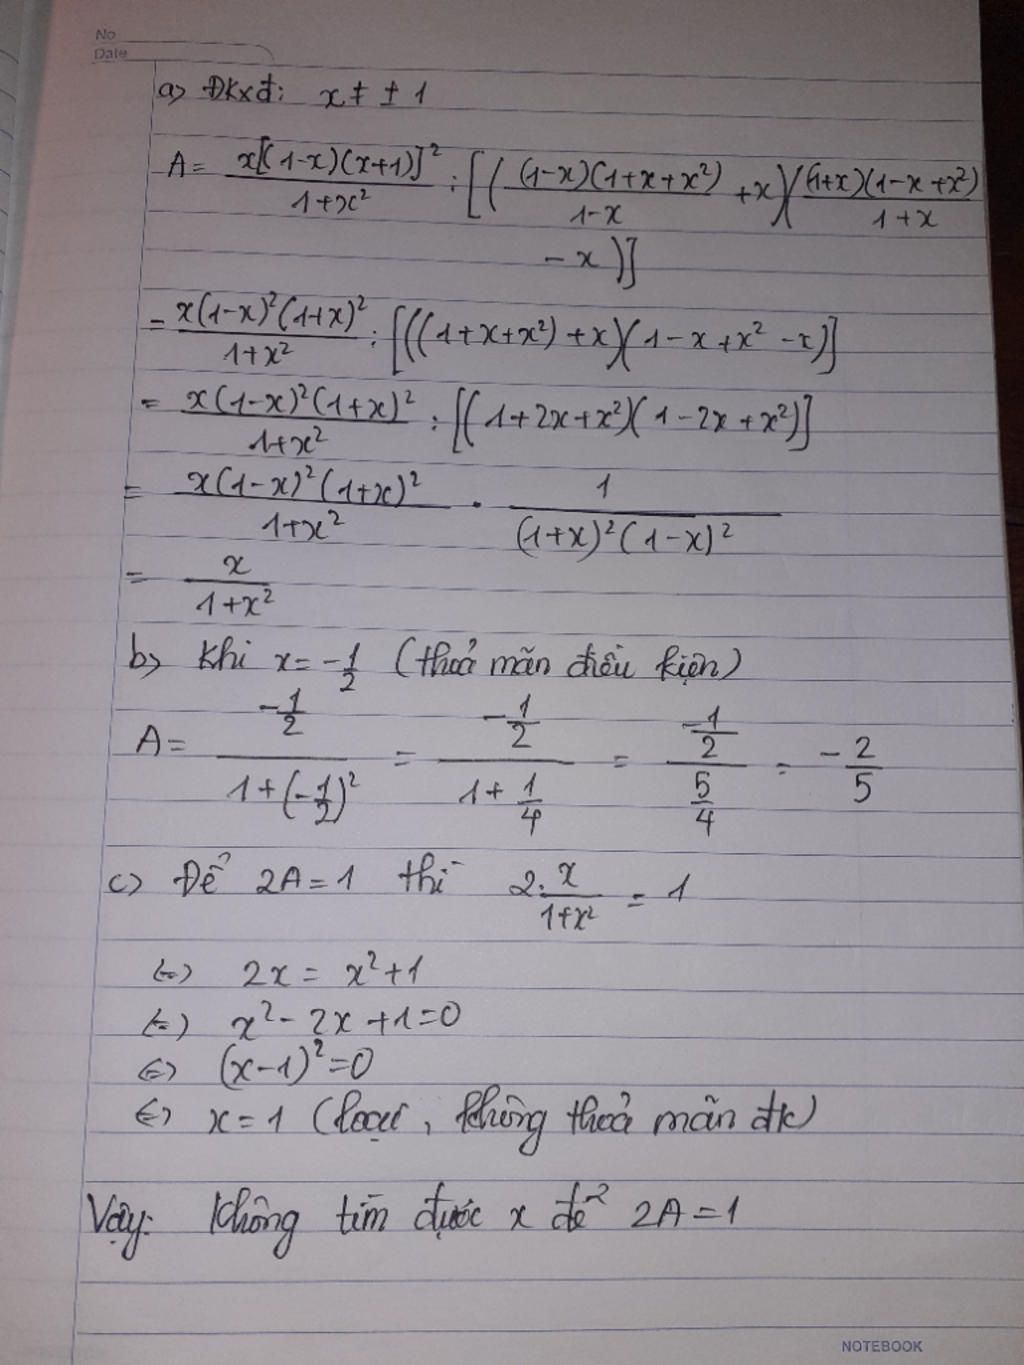 No
Date
a) Đkxđ: x ≠ ± 1
A = x[(1-x)(x+1)]² / 1+x² : [( (1-x)(1+x+x²) / 1-x + x)( (1+x)(1-x+x²) / 1+x
- x )]
= x(1-x)²(1+x)² / 1+x² : [((1+x+x²)+x)(1-x+x²-x)]
= x(1-x)²(1+x)² / 1+x² : [(1+2x+x²)(1-2x+x²)]
= x(1-x)²(1+x)² / 1+x² . 1 / (1+x)²(1-x)²
= x / 1+x²
b) Khi x = -1/2 (thoả mãn điều kiện)
A = -1/2 / 1+(-1/2)² = -1/2 / 1+1/4 = -1/2 / 5/4 = -2/5
c) Để 2A = 1 thì 2. x / 1+x² = 1
(=) 2x = x²+1
(=) x²-2x+1=0
(=) (x-1)²=0
(=) x=1 (loại, không thoả mãn đk)
Vậy: Không tìm được x để 2A=1
NOTEBOOK